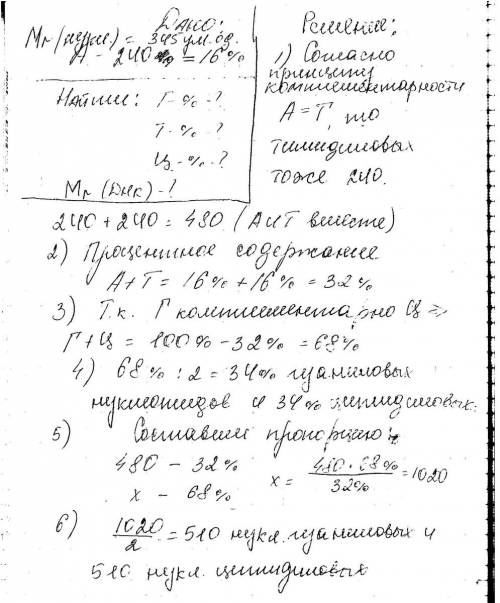 Дано:
Mr (нукл.) = 345 ум. ед.
А - 240 % = 16%
Найти: Г-%-?
Т-%-?
Ц-%-?
Mr (ДНК) -?
Решение:
1) Согласно
принципу
комплементарности
А = Т, то
тимидиловых
тоже 240.
240 + 240 = 480 (А и Т вместе)
2) Процентное содержание
А+Т = 16% + 16% = 32%
3) Т.к. Г комплементарно Ц =>
Г+Ц = 100% - 32% = 68%
4) 68% : 2 = 34% гуаниловых
нуклеотидов и 34% цитидиловых.
5) Составим пропорцию:
480 - 32%
x - 68%
x = 480 · 68% / 32% = 1020
6) 1020 / 2 = 510 нукл. гуаниловых и
510 нукл. цитидиловых